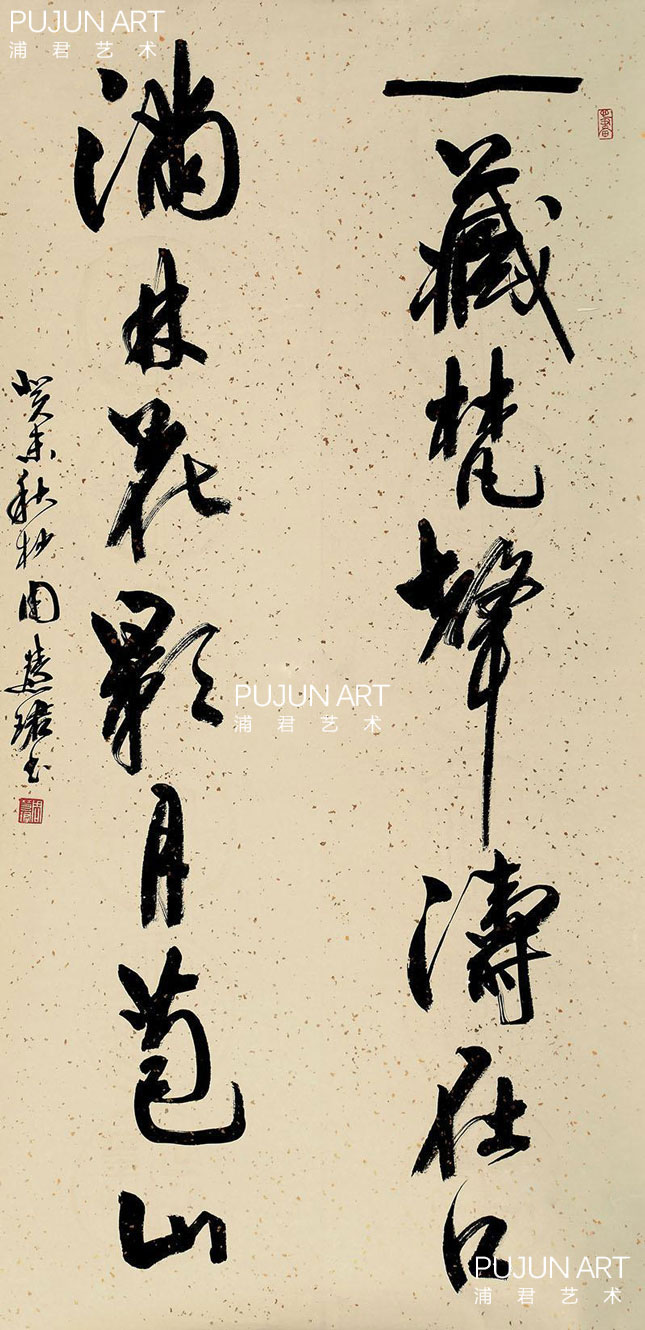 PUJUN ART
浦君艺术
一藏梵聲濤在口
滿林花影月苞山
癸未秋杪周慧珺书
PUJUN ART
浦君艺术
PUJUN ART
浦君艺术